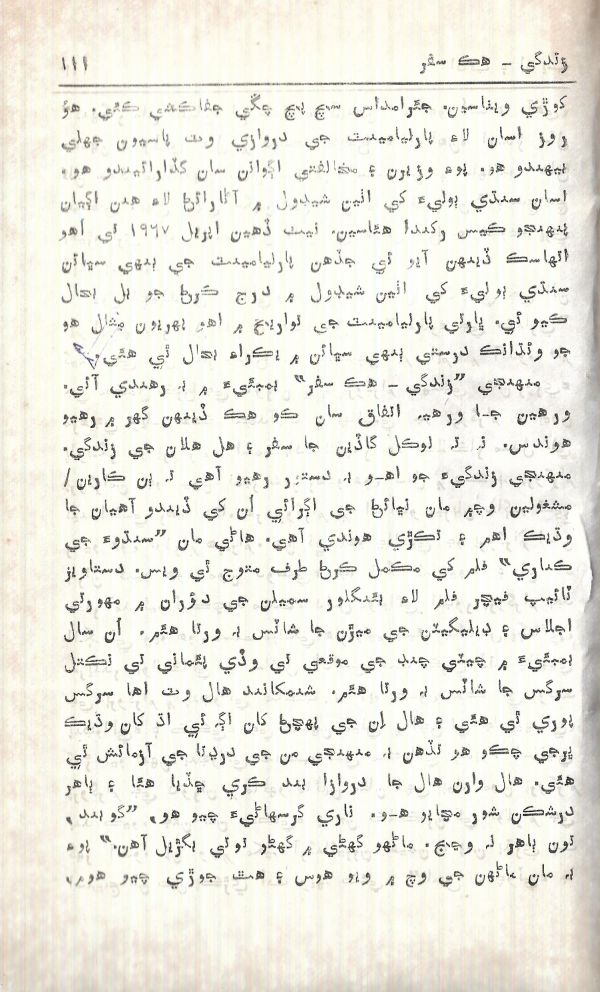 زندگي – هڪ سفر ١١١
ڪوڙي ويٺاسين. جئرامداس سڀ پڇ چڱي جفاڪشي ڪئي. هو
روز اسان لاءِ پارليامينٽ جي دروازي وٽ پاسيون جهلي
بيهندو هو. پوءِ وزيرن ۽ مخالفتي اڳواڻن سان گڏارائيندو هو.
اسان سنڌي ٻوليءَ کي اٺين شيڊول ۾ آڻارائڻ لاءِ هنن اڳيان
پنهنجو ڪيس رکندا هئاسين. نيٺ ڏهين اپريل ١٩٦٧ تي اهو
اتهاسڪ ڏينهن آيو ئي جڏهن پارليامينٽ جي ٻنهي سڀائن
سنڌي ٻوليءَ کي اٺين شيڊول ۾ درج ڪرڻ جو بل بحال
ڪيو ئي. ڀارتي پارليامينٽ جي تواريخ ۾ اهو پهريون مثال هو
جو وڌانڪ درستي ٻنهي سڀائن ۾ يڪراءِ بحال ٿي هئي.
منهنجي ”زندگي – هڪ سفر“ بمبئيءَ ۾ به رهندي آئي.
ورهين جا ورهيه اتفاق سان ڪو هڪ ڏينهن گهر ۾ رهيو
هوندس. نه ته لوڪل گاڏين جا سفر ۽ هل هلان جي زندگي.
منهنجي زندگيءَ جو اهو به دستور رهيو آهي ته ٻن ڪارين/
مشغولين وچ ۾ مان نڀائڻ جي اڳرائي اُن کي ڏيندو آهيان جا
وڌيڪ اهم ۽ تڪڙي هوندي آهي. هاڻي مان ”سنڌوءَ جي
ڪناري“ فلم کي مڪمل ڪرڻ طرف متوجه ٿي ويس. دستاويز
ٽائيپ فيچر فلم لاءِ بئنگلور سميلن جي دؤران ۾ مهورتي
اجلاس ۽ ڊيليگيٽن جي ميڙن جا شاٽس به ورتا هئم. اُن سال
بمبئيءَ ۾ چيٽي چنڊ جي موقعي تي وڏي پئماني تي نڪتل
سرگس جا شاٽس به ورتا هئم. شنمکانند هال وٽ اها سرگس
پوري ٿي هئي ۽ هال اِن جي پهچڻ کان اڳ ئي اڌ کان وڌيڪ
ڀرجي چڪو هو تڏهن به منهنجي من جي درڍتا جي آزمائش ٿي
هئي. هال وارن هال جا دروازا بند ڪري ڇڏيا هئا ۽ ٻاهر
درشڪن شور مچايو هو. تاري گرسهاڻيءَ چيو هو، ”گوبند،
تون ٻاهر نه وڃج. ماڻهو گهڻي ۾ گهڻو توتي بگڙيل آهن.“ پوءِ
به مان ماڻهن جي وچ ۾ ويو هوس ۽ هٿ جوڙي چيو هوم،